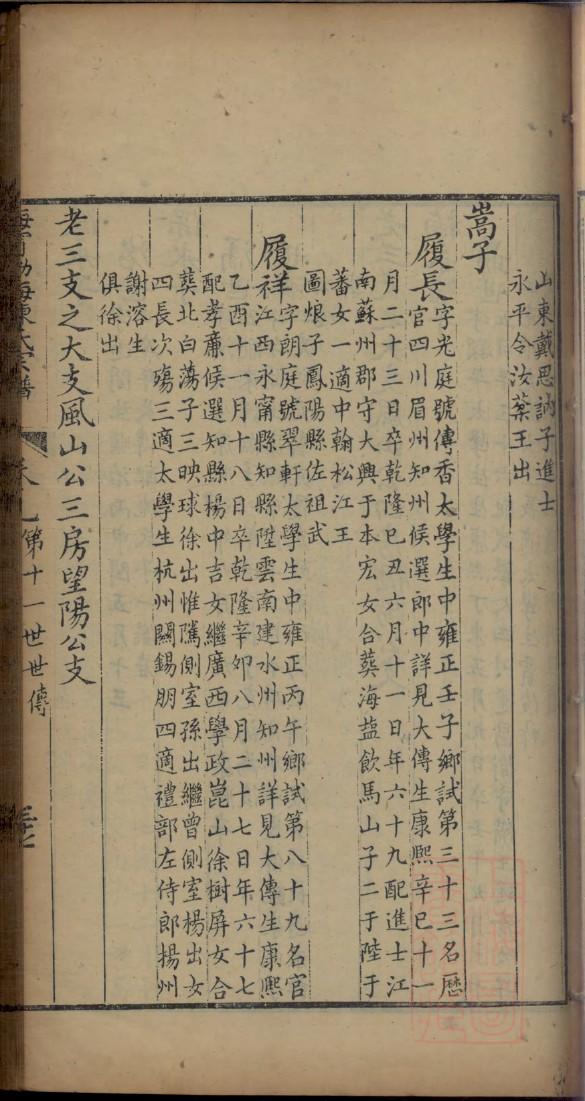 山東戴思訥子進士
永平令汝棻王出
嵩子
履長字光庭號傳香太學生中雍正壬子鄉試第三十三名歷
官四川眉州知州候選郎中詳見大傳生康熙辛巳十一
月二十三日卒乾隆己丑六月十一日年六十九配進士江
南蘇州郡守大興于本宏女合葬海鹽飲馬山子二于陛于
蕃女一適中翰松江王
圖烺子鳳陽縣佐祖武
履祥字朗庭號翠軒太學生中雍正丙午鄉試第八十九名官
江西永甯縣知縣陞雲南建水州知州詳見大傳生康熙
乙酉十一月十八日卒乾隆辛卯八月二十七日年六十七
配孝廉候選知縣楊中吉女繼廣西學政崑山徐樹屏女合
葬北白蕩子三映球徐出惟隲側室孫出繼曾側室楊出女
四長次殤三適太學生杭州闗錫朋四適禮部左侍郎揚州
謝溶生
俱徐出
老三支之大支風山公三房望陽公支
海甯渤海陳氏宗譜
第十一世世傳